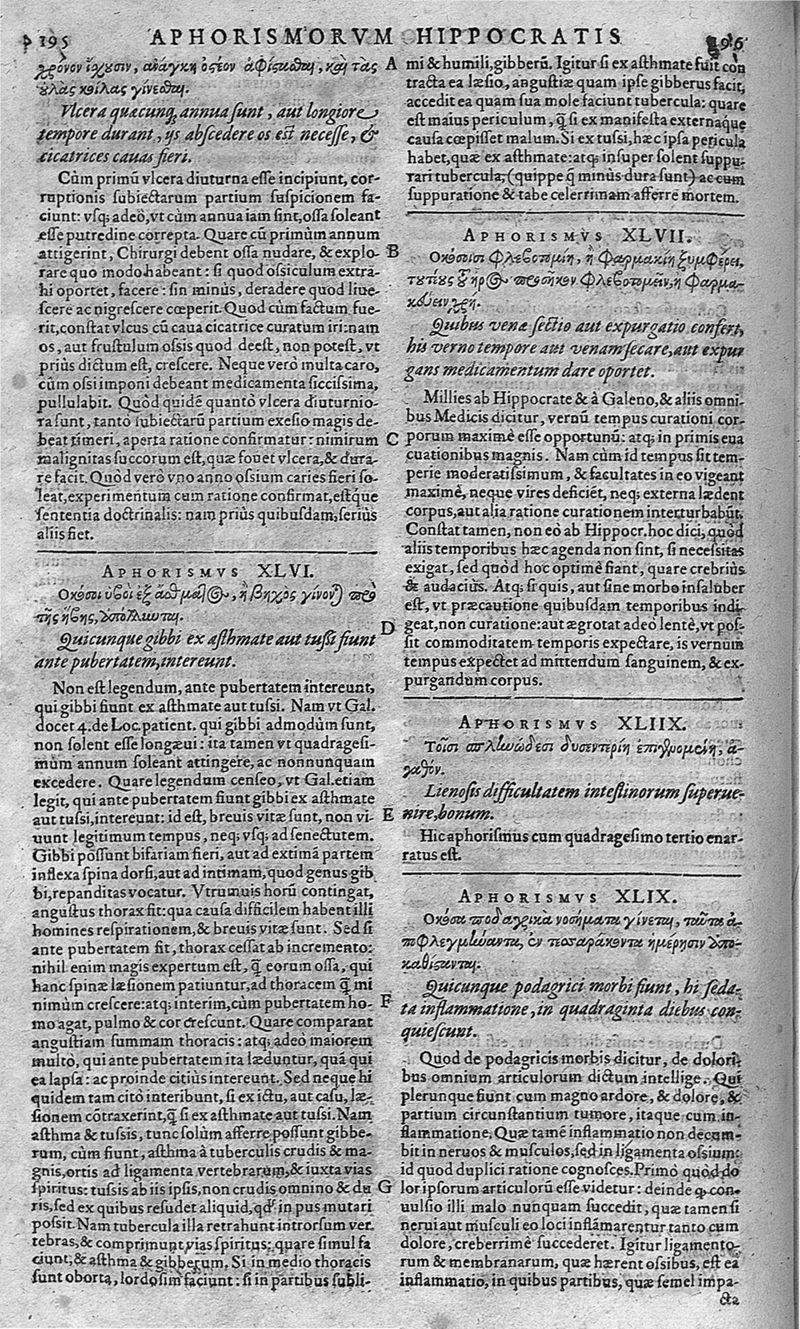 195
APHORISMORVM HIPPOCRATIS
196
χρόνον ἴχουσιν, ἀνάγκη ὀστέον ἀφίστασθαι, καὶ τὰς
οὐλὰς κοίλας γίνεσθαι.
Vlcera quæcunq; annua sunt, aut longiore
tempore durant, ijs abscedere os est necesse, &
cicatrices cauas fieri.
Cùm primũ vlcera diuturna esse incipiunt, cor-
ruptionis subiectarum partium suspicionem fa-
ciunt: vsq; adeò, vt cùm annua iam sint, ossa soleant
esse putredine correpta. Quare cũ primùm annum
attigerint, Chirurgi debent ossa nudare, & explo-
rare quo modo habeant: si quod ossiculum extra-
hi oportet, facere: sin minùs, deradere quod liue-
scere ac nigrescere cœperit. Quod cùm factum fue-
rit, constat vlcus cũ caua cicatrice curatum iri: nam
os, aut frustulum ossis quod deest, non potest, vt
priùs dictum est, crescere. Neque verò multa caro,
cùm ossi imponi debeant medicamenta siccissima,
pullulabit. Quòd quidẽ quantò vlcera diuturnio-
ra sunt, tantò subiectarũ partium exesio magis de-
beat timeri, aperta ratione confirmatur: nimirum
malignitas succorum est, quæ fouet vlcera, & dura-
re facit. Quòd verò vno anno ossium caries fieri so-
leat, experimentum cum ratione confirmat, estque
sententia doctrinalis: nam priùs quibusdam, seriùs
aliis fiet.
APHORISMVS XLVI.
Ὁκόσοι ὑβοὶ ἐξ ἄσθματος, ἢ βηχὸς γίνονται πρὸ
τῆς ἥβης, ἀπόλλυνται.
Quicunque gibbi ex asthmate aut tussi fiunt
ante pubertatem, intereunt.
Non est legendum, ante pubertatem intereunt,
qui gibbi fiunt ex asthmate aut tussi. Nam vt Gal.
docet 4. de Loc. patient. qui gibbi admodùm sunt,
non solent esse longæui: ita tamen vt quadragesi-
mùm annum soleant attingere, ac nonnunquam
excedere. Quare legendum censeo, vt Gal. etiam
legit, qui ante pubertatem fiunt gibbi ex asthmate
aut tussi, intereunt: id est, breuis vitæ sunt, non vi-
uunt legitimum tempus, neq; vsq; ad senectutem.
Gibbi possunt bifariam fieri, aut ad extimã partem
inflexa spina dorsi, aut ad intimam, quod genus gib
bi, repanditas vocatur. Vtrumuis horũ contingat,
angustus thorax fit: qua causa difficilem habent illi
homines respirationem, & breuis vitæ sunt. Sed si
ante pubertatem fit, thorax cessat ab incremento:
nihil enim magis expertum est, q̃ eorum ossa, qui
hanc spinæ læsionem patiuntur, ad thoracem q̃ mi
nimùm crescere: atq; interim, cùm pubertatem ho-
mo agat, pulmo & cor crescunt. Quare comparant
angustiam summam thoracis: atq; adeò maiorem
multò, qui ante pubertatem ita læduntur, quã qui
ea lapsa: ac proinde citiùs intereunt. Sed neque hi
quidem tam citò interibunt, si ex ictu, aut casu, læ-
sionem cõtraxerint, q̃ si ex asthmate aut tussi. Nam
asthma & tussis, tunc solùm afferre possunt gibbe-
rum, cùm fiunt, asthma à tuberculis crudis & ma-
gnis, ortis ad ligamenta vertebrarum, & iuxta vias
spiritus: tussis ab iis ipsis, non crudis omnino & du
ris, sed ex quibus resudet aliquid, qd' in pus mutari
possit. Nam tubercula illa retrahunt introrsum ver-
tebras, & comprimunt vias spiritus: quare simul fa
ciunt, & asthma & gibberum. Si in medio thoracis
sunt oborta, lordosim faciunt: si in partibus subli-
A
B
C
D
E
F
G
mi & humili, gibberũ. Igitur si ex asthmate fuit con
tracta ea læsio, angustiæ quam ipse gibberus facit,
accedit ea quam sua mole faciunt tubercula: quare
est maius periculum, q̃ si ex manifesta externaque
causa cœpisset malum. Si ex tussi, hæc ipsa pericula
habet, quæ ex asthmate: atq; insuper solent suppu-
rari tubercula, (quippe q̃ minùs dura sunt) ac cum
suppuratione & tabe celerrimam afferre mortem.
APHORISMVS XLVII.
Ὁκόσοισι φλεβοτομίη, ἢ φαρμακίη ξυμφέρει,
τουτέους ἦρος προσῆκον φλεβοτομεῖν, ἢ φαρμα-
κεύειν χρή.
Quibus venæ sectio aut expurgatio confert,
his verno tempore aut venam secare, aut expur
gans medicamentum dare oportet.
Millies ab Hippocrate & à Galeno, & aliis omni-
bus Medicis dicitur, vernũ tempus curationi cor-
porum maximè esse opportunũ: atq; in primis eua
cuationibus magnis. Nam cùm id tempus sit tem-
perie moderatissimum, & facultates in eo vigeant
maximè, neque vires deficiẽt, neq; externa lædent
corpus, aut alia ratione curationem interturbabũt.
Constat tamen, non eò ab Hippocr. hoc dici, quòd
aliis temporibus hæc agenda non sint, si necessitas
exigat, sed quòd hoc optimè fiant, quare crebriùs
& audaciùs. Atq; si quis, aut sine morbo insaluber
est, vt præcautione quibusdam temporibus indi-
geat, non curatione: aut ægrotat adeò lentè, vt pos-
sit commoditatem temporis expectare, is vernum
tempus expectet ad mittendum sanguinem, & ex-
purgandum corpus.
APHORISMVS XLIIX.
Τοῖσι σπληνώδεσι δυσεντερίη ἐπιγενομένη, ἀ-
γαθόν.
Lienosis difficultatem intestinorum superue-
nire, bonum.
Hic aphorismus cum quadragesimo tertio enar-
ratus est.
APHORISMVS XLIX.
Ὁκόσα ποδαγρικὰ νοσήματα γίνεται, ταῦτα ἀ-
ποφλεγμήναντα, ἐν τεσσαράκοντα ἡμέρῃσιν ἀπο-
καθίσταται.
Quicunque podagrici morbi fiunt, hi seda-
ta inflammatione, in quadraginta diebus con-
quiescunt.
Quod de podagricis morbis dicitur, de dolori-
bus omnium articulorum dictum intellige. Qui
plerunque fiunt cum magno ardore, & dolore, &
partium circunstantium tumore, itaque cum in-
flammatione. Quæ tamẽ inflammatio non decum-
bit in neruos & musculos, sed in ligamenta ossium:
id quod duplici ratione cognosces. Primò quòd do
lor ipsorum articulorũ esse videtur: deinde q̃ con-
uulsio illi malo nunquam succedit, quæ tamen si
nerui aut musculi eo loci inflãmarentur tanto cum
dolore, creberrimè succederet. Igitur ligamento-
rum & membranarum, quæ hærent ossibus, est ea
inflammatio, in quibus partibus, quæ semel impa-
cta